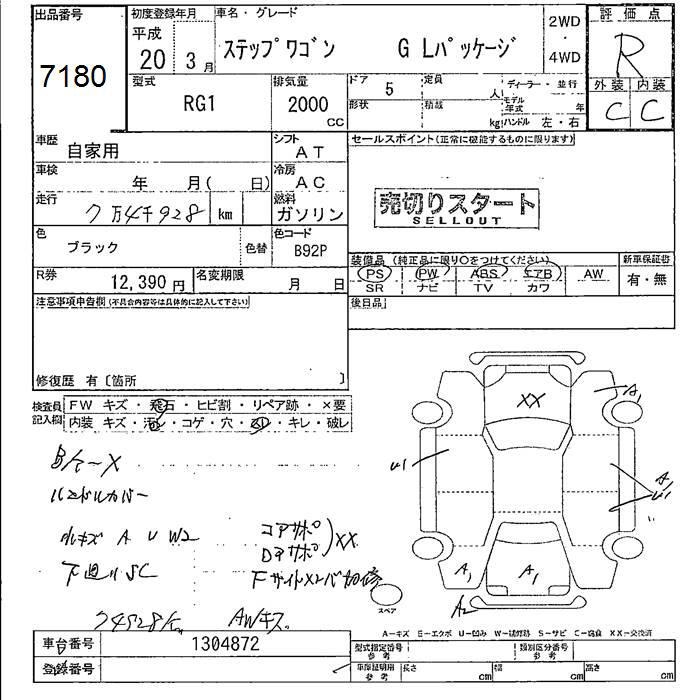 出品番号
7180
初度登録年月
平成
20 3月
車名・グレード
ステップワゴン G Lパッケージ
2WD
・
4WD
評価点
R
外装 内装
C C
型式
RG1
排気量
2000
CC
ドア 5
定員
人
ディーラー・並行
形状
積載
kg
モデル年式
年
ハンドル 左・右
車歴
自家用
シフト
AT
セールスポイント(正常に機能するものに限ります)
車検
年 月( 日)
冷房
AC
売切りスタート
SELLOUT
走行
7万4千928 km
燃料
ガソリン
色
ブラック
色替
色コード
B92P
装備品 (純正品に限り○をつけてください)
PS PW ABS エアB AW
SR ナビ TV カワ
新車保証書
有・無
R券
12,390円
名変期限
月 日
後日品
注意事項申告欄(不具合内容等は具体的に記入して下さい)
修復歴 有〔箇所 〕
検査員
記入欄
FW キズ・飛石・ヒビ割・リペア跡・×要
内装 キズ・汚レ・コゲ・穴・スレ・キレ・破レ
ハンドルカバー
小キズ A U W2
コアサポ
Dアサポ
XX
下廻りSC
74928K
AWキズ
XX
A1
U1
A1
U1
A1
A1
A2
スペア
A-キズ E-エクボ U-凹み W-補修跡 S-サビ C-腐食 XX-交換済
車台番号
1304872
登録番号
型式指定番号
参考
類別区分番号
参考
車庫証明用
参考
長さ cm
幅 cm
高さ cm